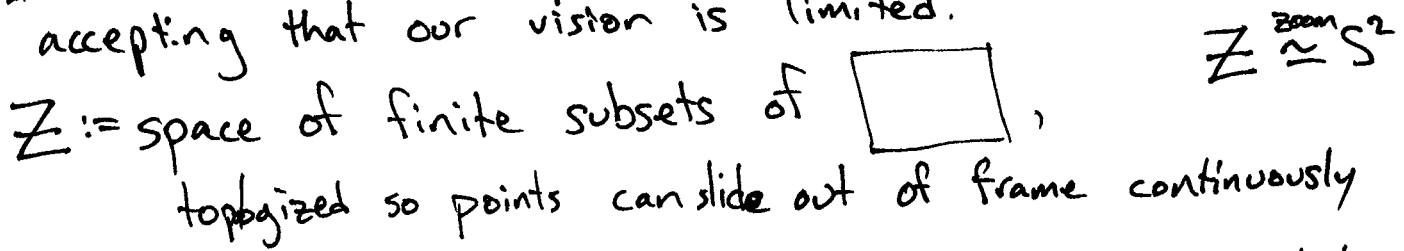 accepting that our vision is limited.
Z zoom ≃ S²
Z := space of finite subsets of ,
topologized so points can slide out of frame continuously